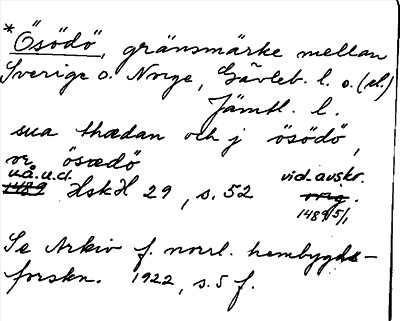 *Ösödö, gränsmärke mellan
Sverige o. Norge, Gävleb. l. o. (el.)
Jämtl. l.
sua thædan och j ösödö,
vr ösædö
u.å.u.d. vid. avskr.
1489 HskH 29, s. 52 orig.
1489 15/1
Se Arkiv f. norrl. hembygds-
forskn. 1922, s. 5 f.